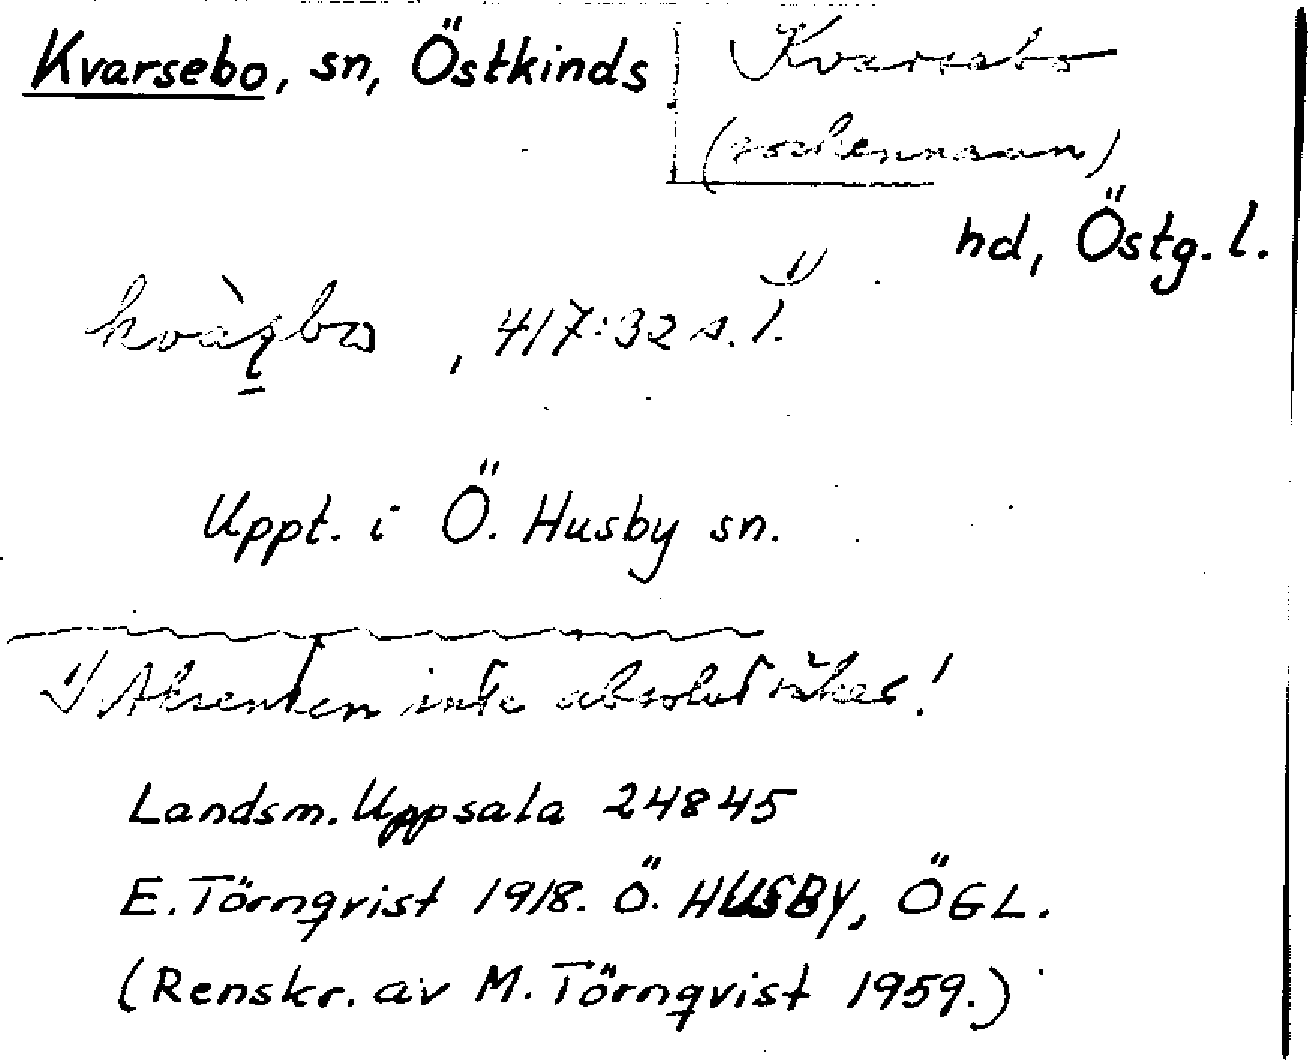 Kvarsebo, sn, Östkinds
Kvarsebo
(sockennamn)
hd, Östg. l.
, 417:32 s. l. 1)
Uppt. i Ö. Husby sn.
1) Aksenten inte absolut säker!
Landsm. Uppsala 24845
E. Törnqvist 1918. Ö. HUSBY, ÖGL.
(Renskr. av M. Törnqvist 1959.)